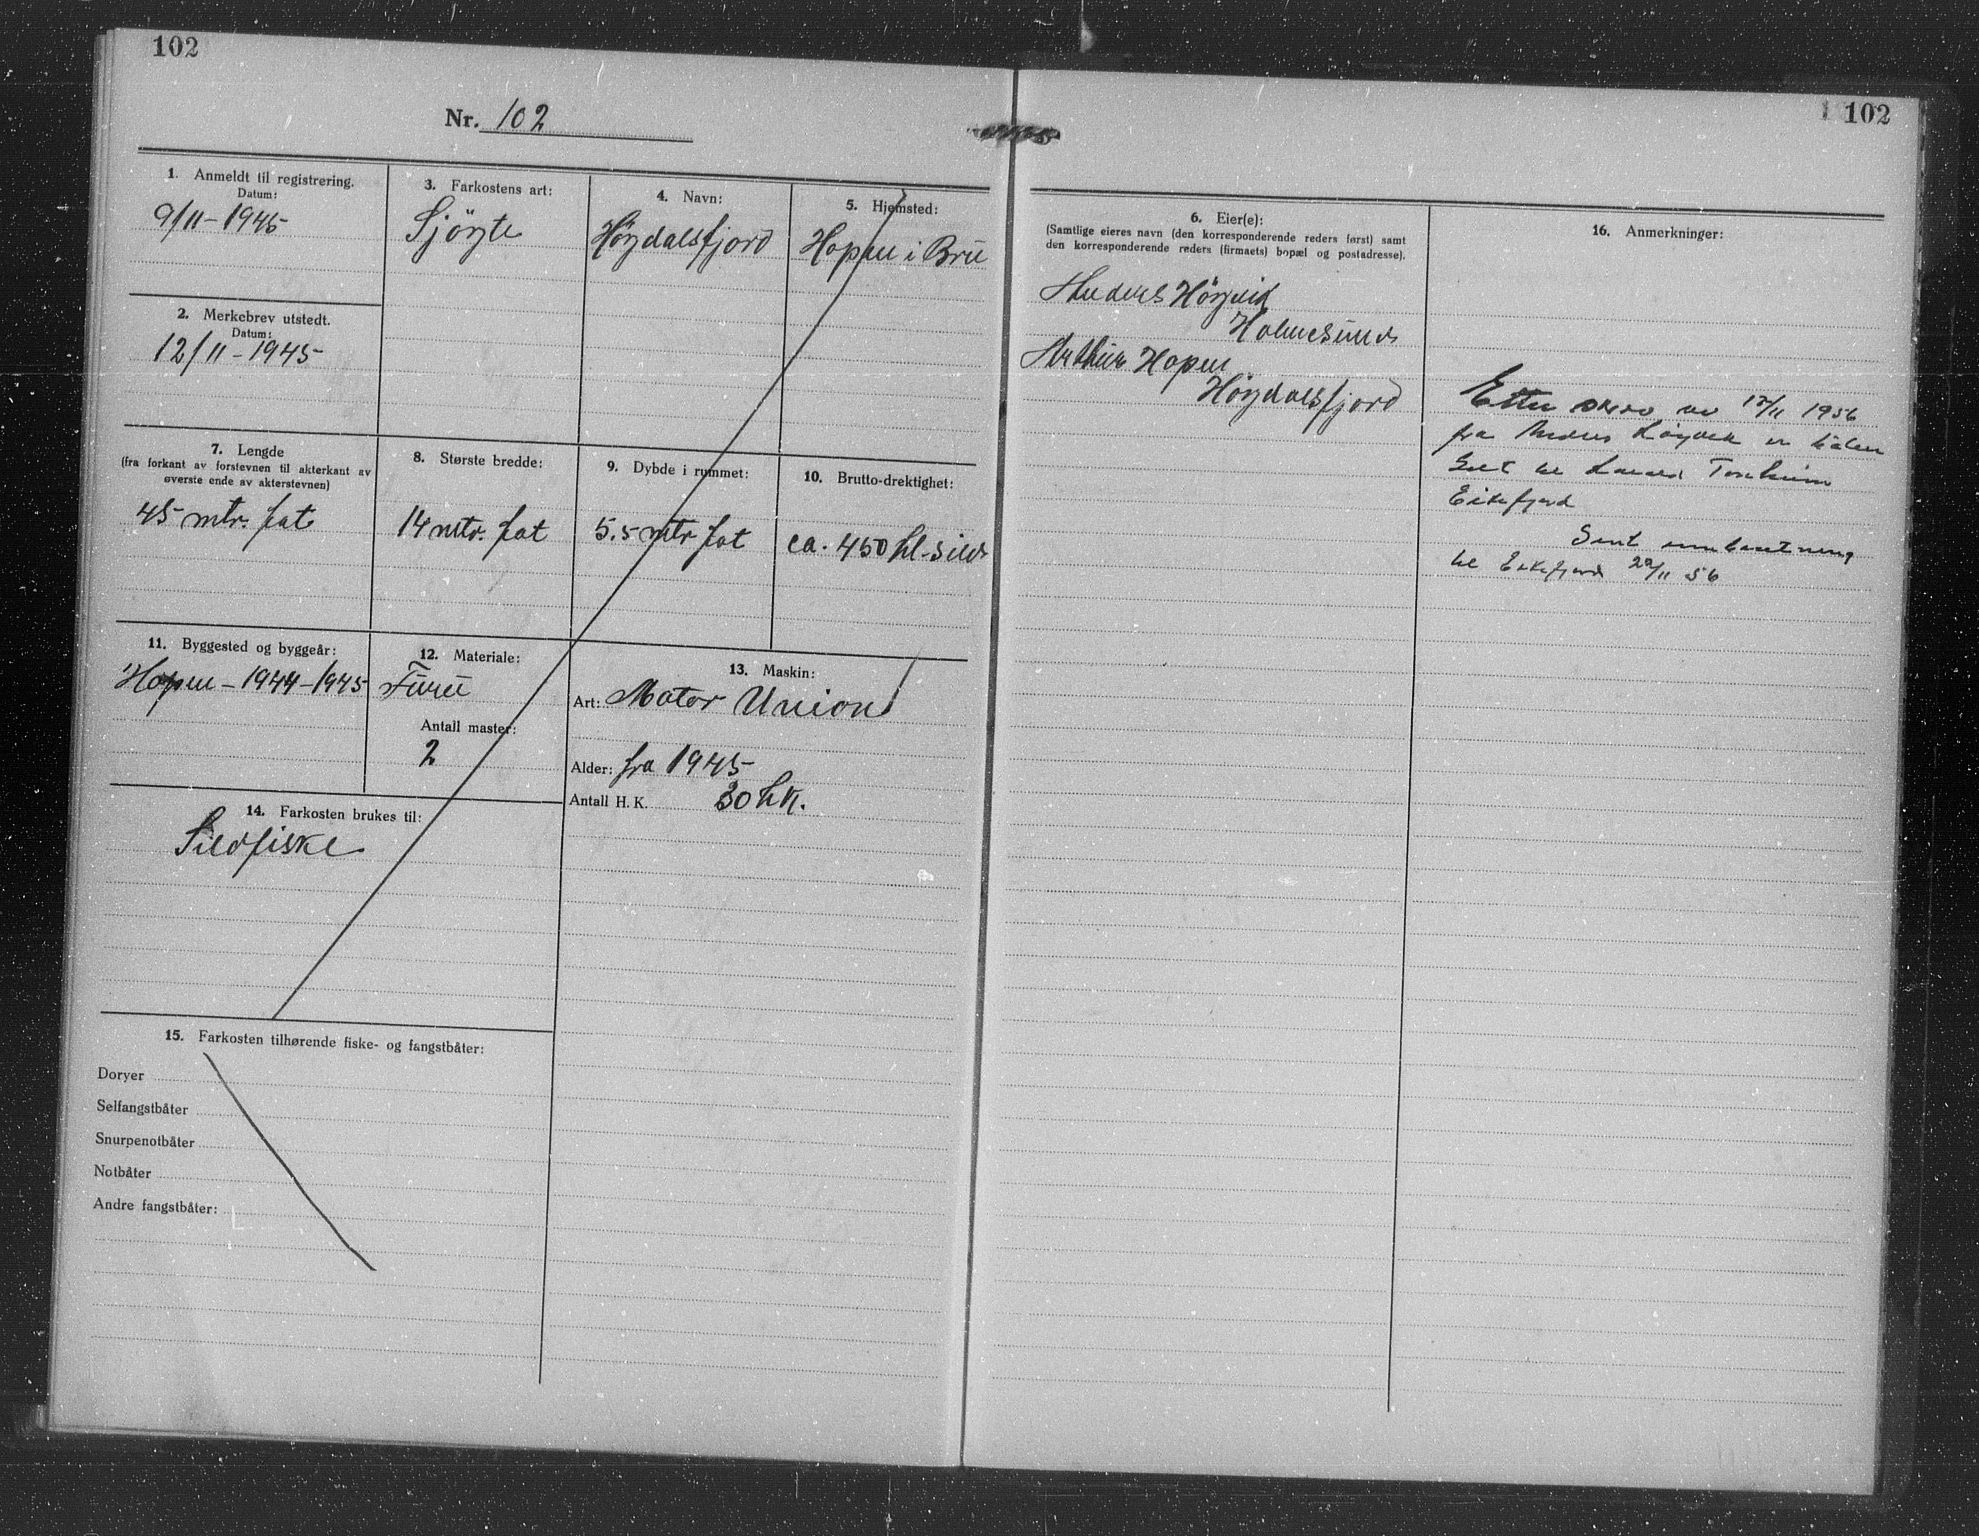 102
Nr. 102
1. Anmeldt til registrering.
Datum:
9/11-1945
2. Merkebrev utstedt.
Datum:
12/11-1945
3. Farkostens art:
Sjöigte
4. Navn:
Höydalsfjord
5. Hjemsted:
Hopen i Bru
7. Lengde
(fra forkant av forstevnen til akterkant av
øverste ende av akterstevnen)
45 mtr. fot
8. Største bredde:
14 mtr. fot
9. Dybde i rummet:
5.5 mtr fot
10. Brutto-drektighet:
ca. 450 hl-sild
11. Byggested og byggeår:
Hopen-1944-1945
12. Materiale:
Furu
Antall master:
2
13. Maskin:
Art: Motor Union
Alder: fra 1945
Antall H. K. 30 hk.
14. Farkosten brukes til:
Sildfiske
15. Farkosten tilhørende fiske- og fangstbåter:
Doryer
Selfangstbåter
Snurpenotbåter
Notbåter
Andre fangstbåter:
102
6. Eier(e):
(Samtlige eieres navn (den korresponderende reders først) samt
den korresponderende reders (firmaets) bopæl og postadresse).
Anders Höyvik
Holmesund
Arthur Hopen
Höydalsfjord
16. Anmerkninger:
Etter av 17/11 1956
fra Anders Höyvik er båten
Solt til Tonheim
Eikefjord
Sent
til Eikefjord 20/11 56